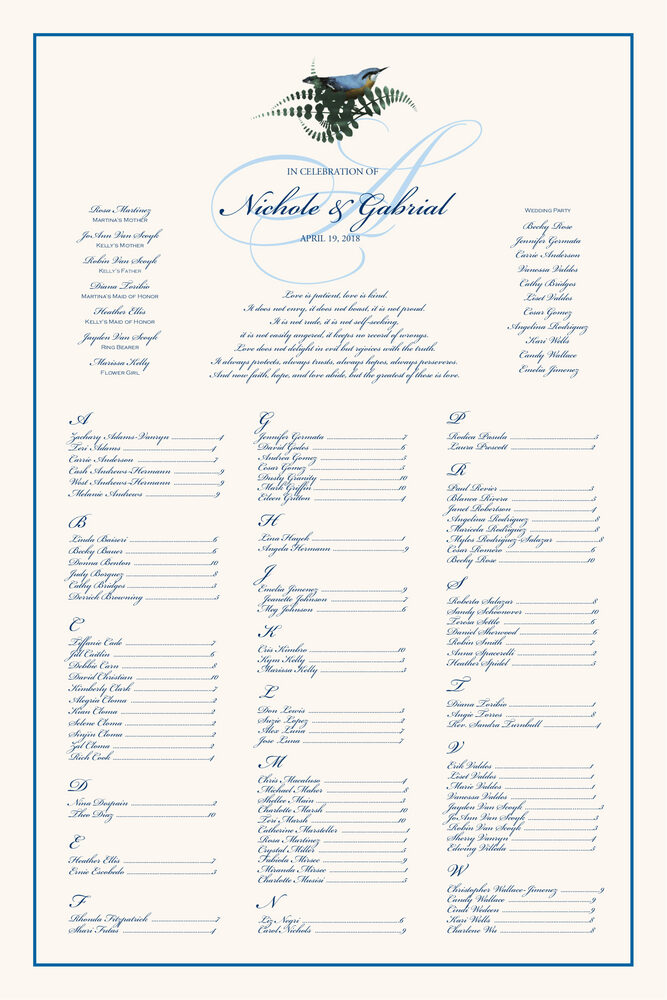 A
IN CELEBRATION OF
Nichole & Gabrial
APRIL 19, 2018
Rosa Martinez
MARTINA'S MOTHER
JoAnn Van Scoyk
KELLY'S MOTHER
Robin Van Scoyk
KELLY'S FATHER
Diana Toribio
MARTINA'S MAID OF HONOR
Heather Ellis
KELLY'S MAID OF HONOR
Jayden Van Scoyk
RING BEARER
Marissa Kelly
FLOWER GIRL
Love is patient, love is kind.
It does not envy, it does not boast, it is not proud.
It is not rude, it is not self-seeking,
it is not easily angered, it keeps no record of wrongs.
Love does not delight in evil but rejoices with the truth.
It always protects, always trusts, always hopes, always perseveres.
And now faith, hope, and love abide, but the greatest of these is love.
WEDDING PARTY
Becky Rose
Jennifer Germata
Carrie Anderson
Vanessa Valdes
Cathy Bridges
Liset Valdes
Cesar Gomez
Angelina Rodriguez
Kari Wells
Candy Wallace
Emelia Jimenez
A
Zachary Adams-Vanryn 4
Teri Adams 4
Carrie Anderson 7
Cash Andrews-Hermann 9
West Andrews-Hermann 9
Melanie Andrews 9
B
Linda Baiseri 6
Becky Bauer 6
Donna Benton 10
Judy Borquez 8
Cathy Bridges 3
Derrick Browning 5
C
Tiffanie Cade 7
Jill Caitlin 6
Debbie Carn 8
David Christian 10
Kimberly Clark 7
Alegria Cloma 2
Kian Cloma 2
Selene Cloma 2
Sinjin Cloma 2
Zal Cloma 2
Rich Cook 4
D
Nina Despain 2
Theo Diaz 10
E
Heather Ellis 7
Ernie Escobedo 3
F
Rhonda Fitzpatrick 7
Shari Futas 4
G
Jennifer Germata 7
David Godes 6
Andrea Gomez 5
Cesar Gomez 5
Dusty Granity 10
Mark Griffin 10
Eileen Gritton 4
H
Lina Hayek 1
Angela Hermann 9
J
Emelia Jimenez 9
Jeanette Johnson 7
Meg Johnson 6
K
Cris Kimbro 10
Kym Kelly 3
Marissa Kelly 3
L
Don Lewis 3
Suzie Lopez 2
Alex Luna 7
Jose Luna 7
M
Chris Macaluso 4
Michael Maher 8
Shellee Main 3
Charlotte Marsh 10
Teri Marsh 10
Catherine Marsteller 1
Rosa Martinez 1
Crystal Miller
Fabiola Mirsec 9
Miranda Mirsec 1
Charlotte Musisi 5
N
Liz Negri 6
Carol Nichols 9
P
Rodica Pasula 5
Laura Prescott 2
R
Paul Revier 3
Blanca Rivera 5
Janet Robertson 4
Angelina Rodriguez 8
Maricela Rodriguez 8
Myles Rodriguez-Salazar 8
Cesar Romero 6
Becky Rose 10
S
Roberta Salazar 8
Sandy Schoonover 10
Teresa Settle 6
Daniel Sherwood 6
Robin Smith 7
Anna Spacarelli 2
Heather Spidel 5
T
Diana Toribio 1
Angie Torres 8
Rev. Sandra Turnbull 4
V
Erik Valdes 1
Liset Valdes 1
Marie Valdes 1
Vanessa Valdes 1
Jayden Van Scoyk 3
JoAnn Van Scoyk 3
Robin Van Scoyk 3
Sherry Vanryn 4
Edwing Villeda 5
W
Christopher Wallace-Jimenez 9
Candy Wallace 9
Cindi Wedeen 9
Kari Wells 8
Charlene Wu 8